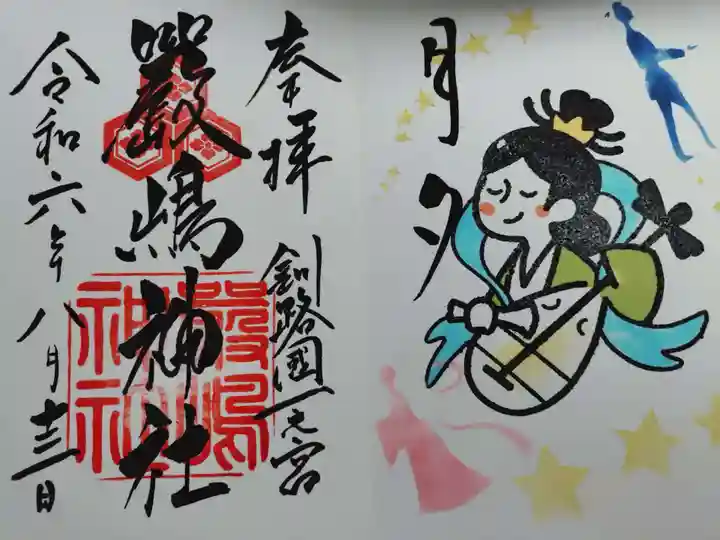 月夕
奉拝
釧路國一之宮
嚴嶋神社
嚴嶋神社
令和六年八月十三日